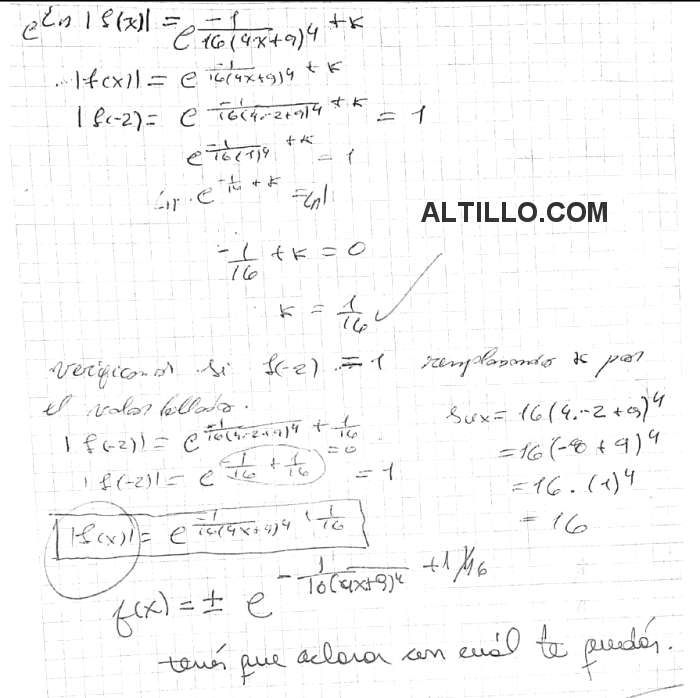 e^{ln |f(x)|} = e^{\frac{-1}{16(4x+9)^4} + K}
|f(x)| = e^{\frac{-1}{16(4x+9)^4} + K}
|f(-2) = e^{\frac{-1}{16(4.-2+9)^4} + K} = 1
e^{\frac{-1}{16(1)^4} + K} = 1
ln e^{-\frac{1}{16} + K} = ln 1
ALTILLO.COM
-\frac{1}{16} + K = 0
K = \frac{1}{16}
verificamos si f(-2) = 1 remplasando K por
el valor hallado.
|f(-2)| = e^{\frac{-1}{16(4.-2+9)^4} + \frac{1}{16}}
|f(-2)| = e^{-\frac{1}{16} + \frac{1}{16}} = 1
=0
aux = 16(4.-2+9)^4
= 16(-8+9)^4
= 16 . (1)^4
= 16
|f(x)| = e^{\frac{-1}{16(4x+9)^4} + \frac{1}{16}}
f(x) = ± e^{-\frac{1}{16(4x+9)^4} + 1/16}
tenés que aclarar con cuál te quedás.